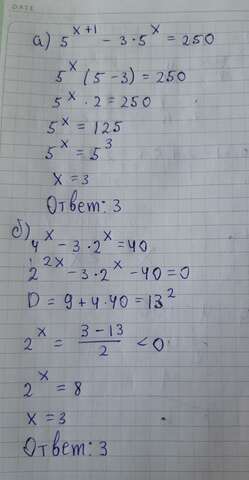 DATE
а) 5^(x+1) - 3·5^x = 250
5^x (5-3) = 250
5^x · 2 = 250
5^x = 125
5^x = 5^3
x = 3
Ответ: 3
б) 4^x - 3·2^x = 40
2^(2x) - 3·2^x - 40 = 0
D = 9 + 4·40 = 13^2
2^x = (3-13)/2 < 0
2^x = 8
x = 3
Ответ: 3